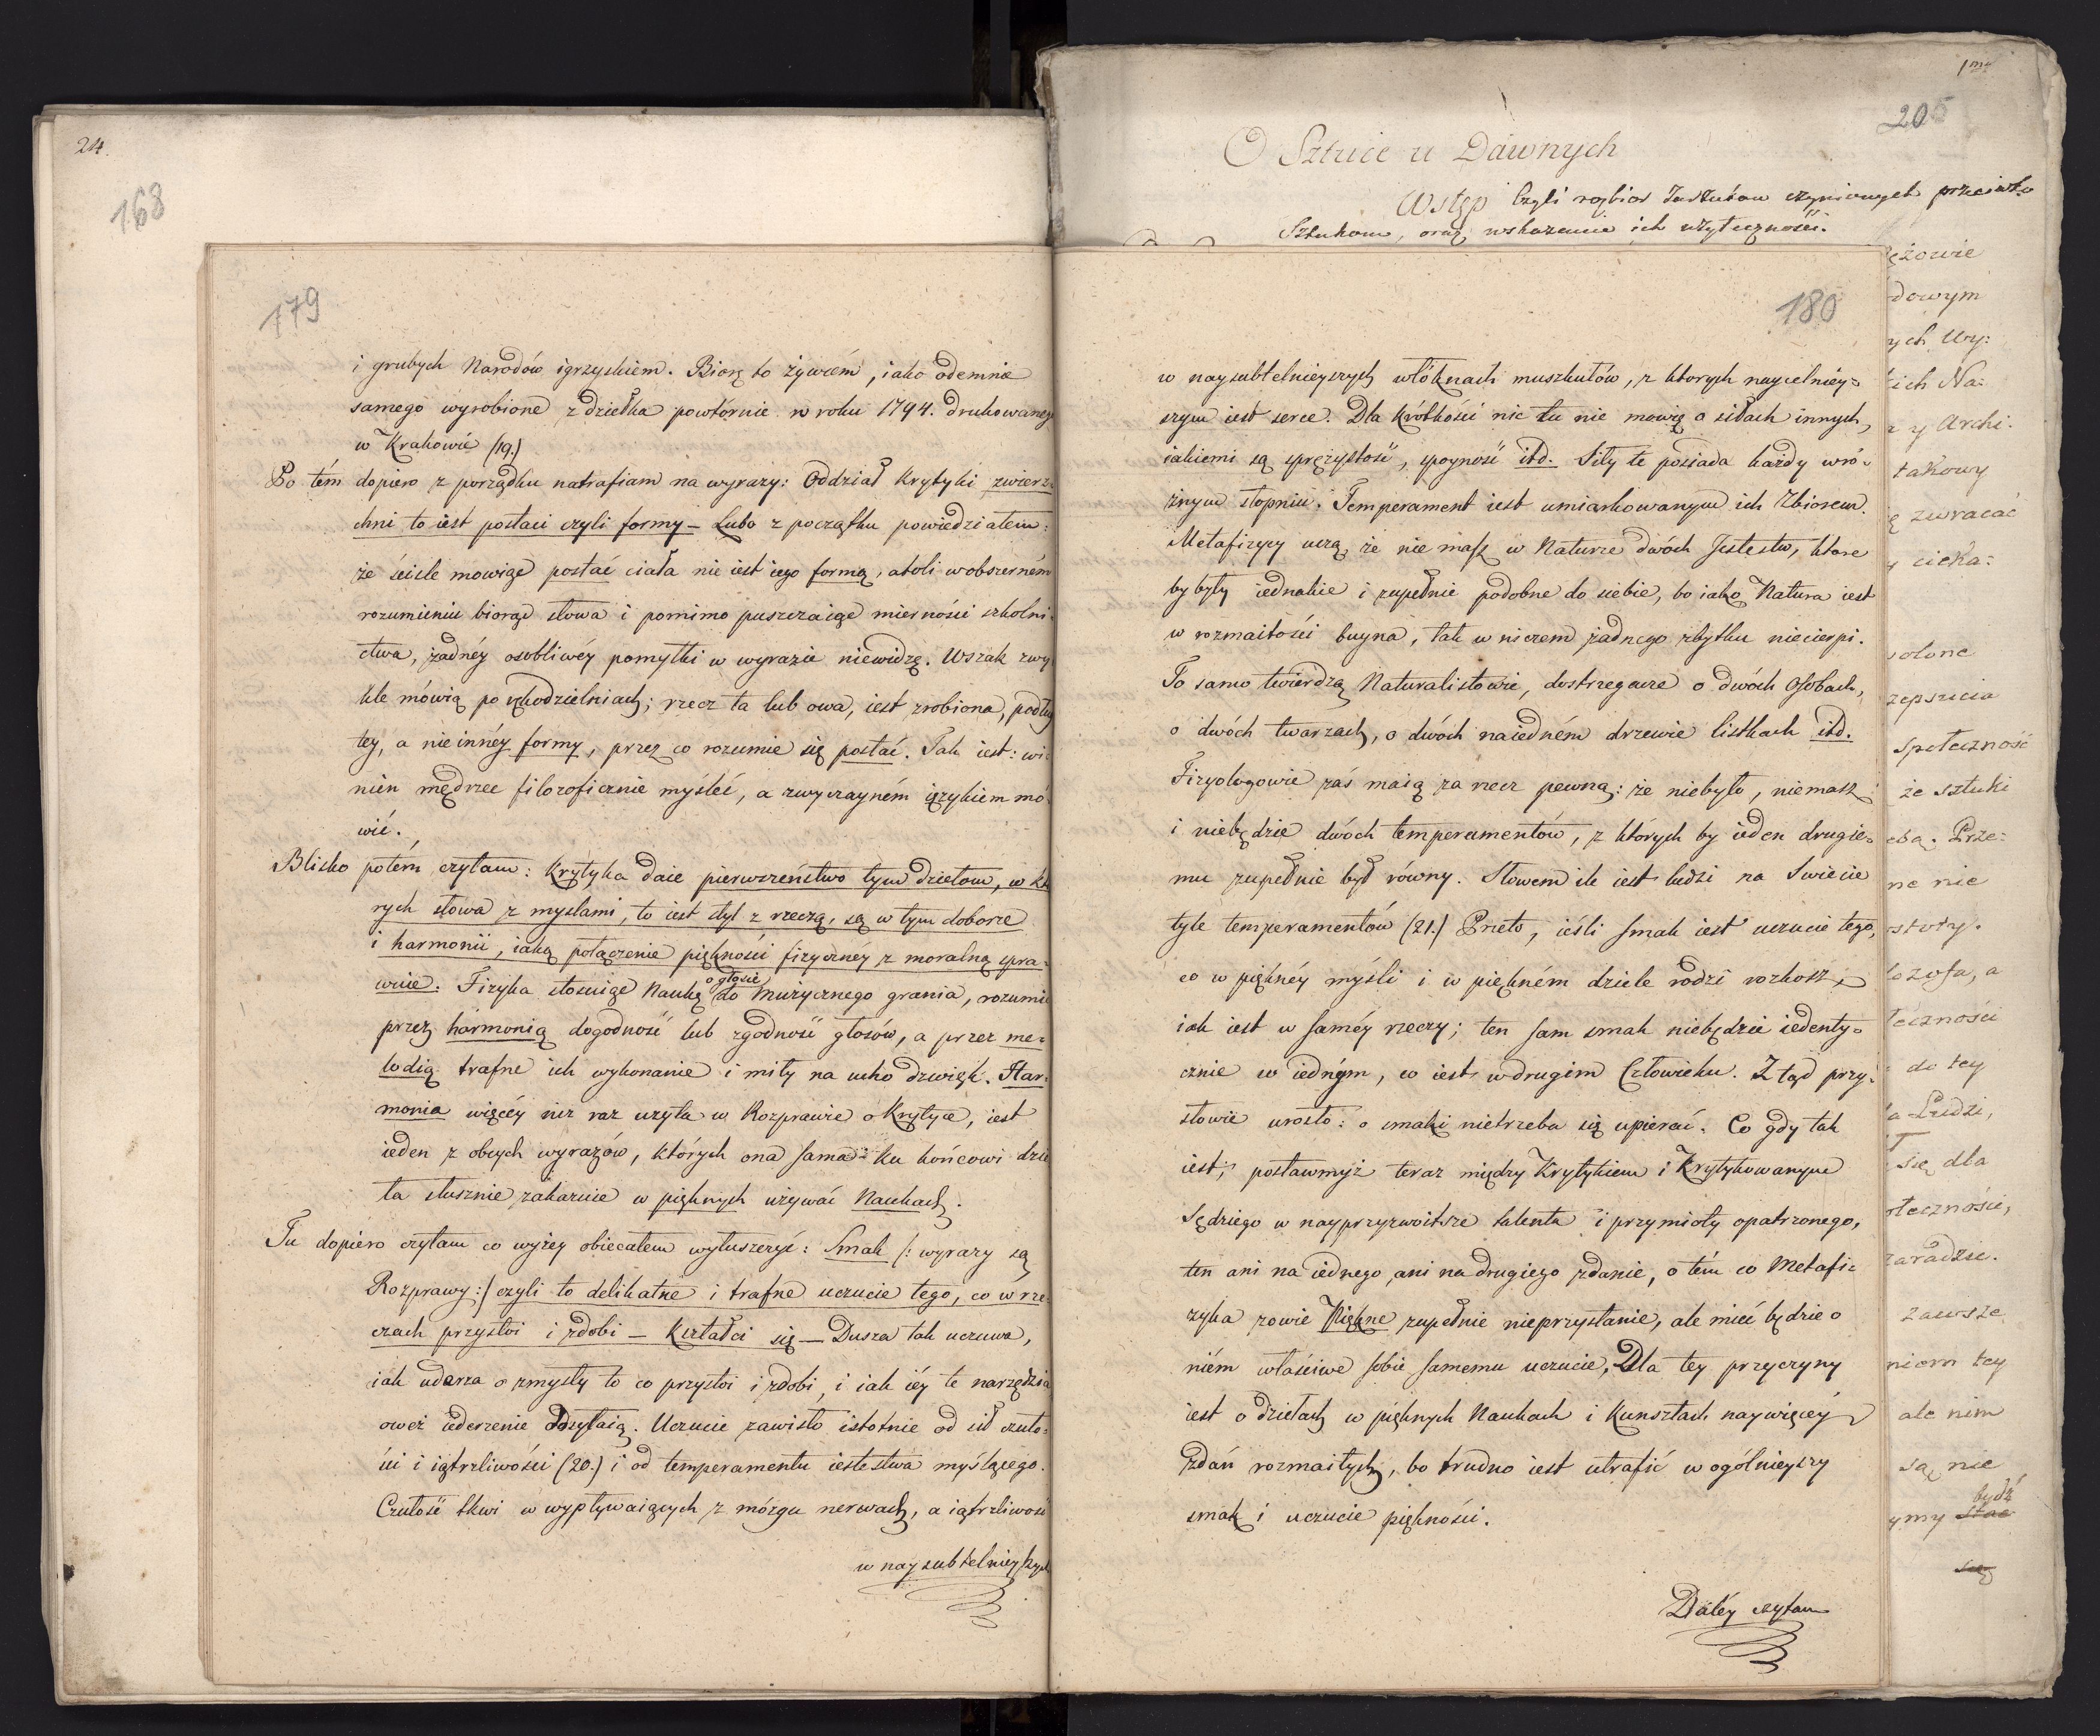 24.
168
179
i grubych Narodów igrzyskiem. Biorę to żywcém, iako odemnie
samego wyrobione z dziełka powtórnie w roku 1794. drukowanego
w Krakowie (19.)
Po tém dopiero z porządku natrafiam na wyrazy: Oddział Krytyki zwierz=
chni to iest postaci czyli formy – Lubo z początku powiedziałem:
że ściśle mowiąc postać ciała nie iest iego formą, atoli w obszerném
rozumieniu biorąc słowa i pomimo puszczaiąc mierności szkolni=
ctwa, żadnéy osobliwéy pomyłki w wyrazie niewidzę. Wszak zwy
kle mówią po rękodzielniach; rzecz ta lub owa, iest zrobiona, podług
tey, a nie innéy formy, przez co rozumie się postać. Tak iest: wi=
nien mędrzec filozoficznie myśleć, a zwyczayném ięzykiem mó=
wić.
Blisko potém czytam: Krytyka daie pierwszeństwo tym dziełom, w któ
rych słowa z myślami, to iest styl z rzeczą, są w tym doborze
i harmonii, iaką połączenie piękności fizycznéy z moralną spra=
wuie. Fizyka stosuiąc Naukę o głosie do muzycznego grania, rozumie
przez harmonią dogodność lub zgodność głosów, a przez me=
lodią trafne ich wykonanie i miły na ucho dzwięk. Har=
monia więcéy niz raz uzyta w Rozprawie o Krytyce, iest
ieden z obcych wyrazów, których ona sama ku końcowi dzie
ła słusznie zakazuie w pięknych używać Naukach.
Tu dopiero czytam co wyżey obiecałem wyłuszczyć: Smak /: wyrazy są
Rozprawy :/ czyli to delikatne i trafne uczucie tego, co w rze=
czach przystoi i zdobi – Kształci się – Dusza tak uczuwa,
iak uderza o zmysły to co przystoi i zdobi, i iak iéy te narzędzia
oweż uderzenie odsyłaią. Uczucie zawisło istotnie od sił czuło=
ści i iątrzliwości (20.) i od temperamentu iestestwa myślącego.
Czułość tkwi w wypływaiących z mózgu nerwach, a iątrzliwość
w naysubtelnieyszych
1<sup>mo</sup>
205
O Sztuce u Dawnych
Wstęp Czyli rozbior Zarzutow czynionych przeciwko
Sztukom, oraz wskazanie ich użyteczności.
180
w naysubtelnieyszych włóknach muszkułów, z ktorych naycelniéy=
szym iest serce. Dla krótkości nic tu nie mowię o siłach innych,
iakiemi są sprężystość, spoyność itd. Siły te posiada każdy wró=
żnym stopniu. Temperament iest umiarkowanym ich Zbiorem.
Metafizycy uczą, że nie masz w Naturze dwóch Jestestw, ktore
by były iednakie i zupełnie podobne do siebie, bo iako Natura iest
w rozmaitości buyna, tak w niczem żadnego zbytku niecierpi.
To samo twierdzą Naturalistowie, dostrzegacze o dwóch Osobach,
o dwóch twarzach, o dwóch naiedném drzewie listkach itd.
Fizyologowie zaś maią za rzecz pewną: że niebyło, niemasz
i niebędzie dwóch temperamentów, z których by ieden drugie=
mu zupełnie był równy. Słowem ile iest ludzi na Swiecie
tyle temperamentów (21.) Przeto, ieśli smak iest uczucie tego,
co w pięknéy myśli i w piękném dziele rodzi rozkosz,
iak iest w saméy rzeczy; ten sam smak niebędzie iedenty=
cznie w iednym, co iest wdrugim Człowieku. Z tąd przy=
słowie urosło: o smaki nietrzeba się upierać. Co gdy tak
iest, postawmyż teraz między Krytykiem i Krytykowanym
Sędziego w nayprzyzwoitsze talenta i przymioty opatrzonego,
ten ani na iednego ani na drugiego zdanie, o tém co Metafi=
zyka zowie Piękne zupełnie nieprzystanie, ale mieć będzie o
niém właściwe sobie samemu uczucie, Dla tey przyczyny
iest o dziełach w pięknych Naukach i Kunsztach naywięcéy
Zdań rozmaitych, bo trudno iest utrafić w ogólnieyszy
smak i uczucie piękności.
Daléy czytam
ężowie
dowym
ych Wy:
ich Na:
z y Archi.
takowy
ę zwracać
y cieka:
zepsucia
społeczność
że sztuki
Prze:
ne nie
lozofa, a
łeczności
do tey
a Ludzi,
się dla
ołeczności,
zaradzie.
zawsze
niom tey
ale nim
są nie
bydź
ymy stać
się